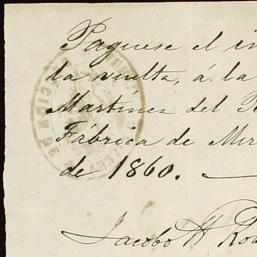 Paguese el
la vuelta, á la
Martinez del
Fábrica de
de 1860. —
Jacobo H